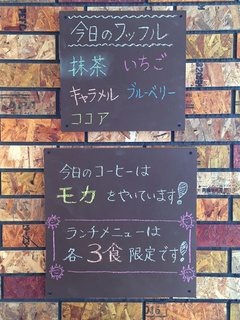 今日のワッフル
抹茶 いちご
キャラメル ブルーベリー
ココア
今日のコーヒーは
モカ をやいています!
ランチメニューは
各3食限定です!